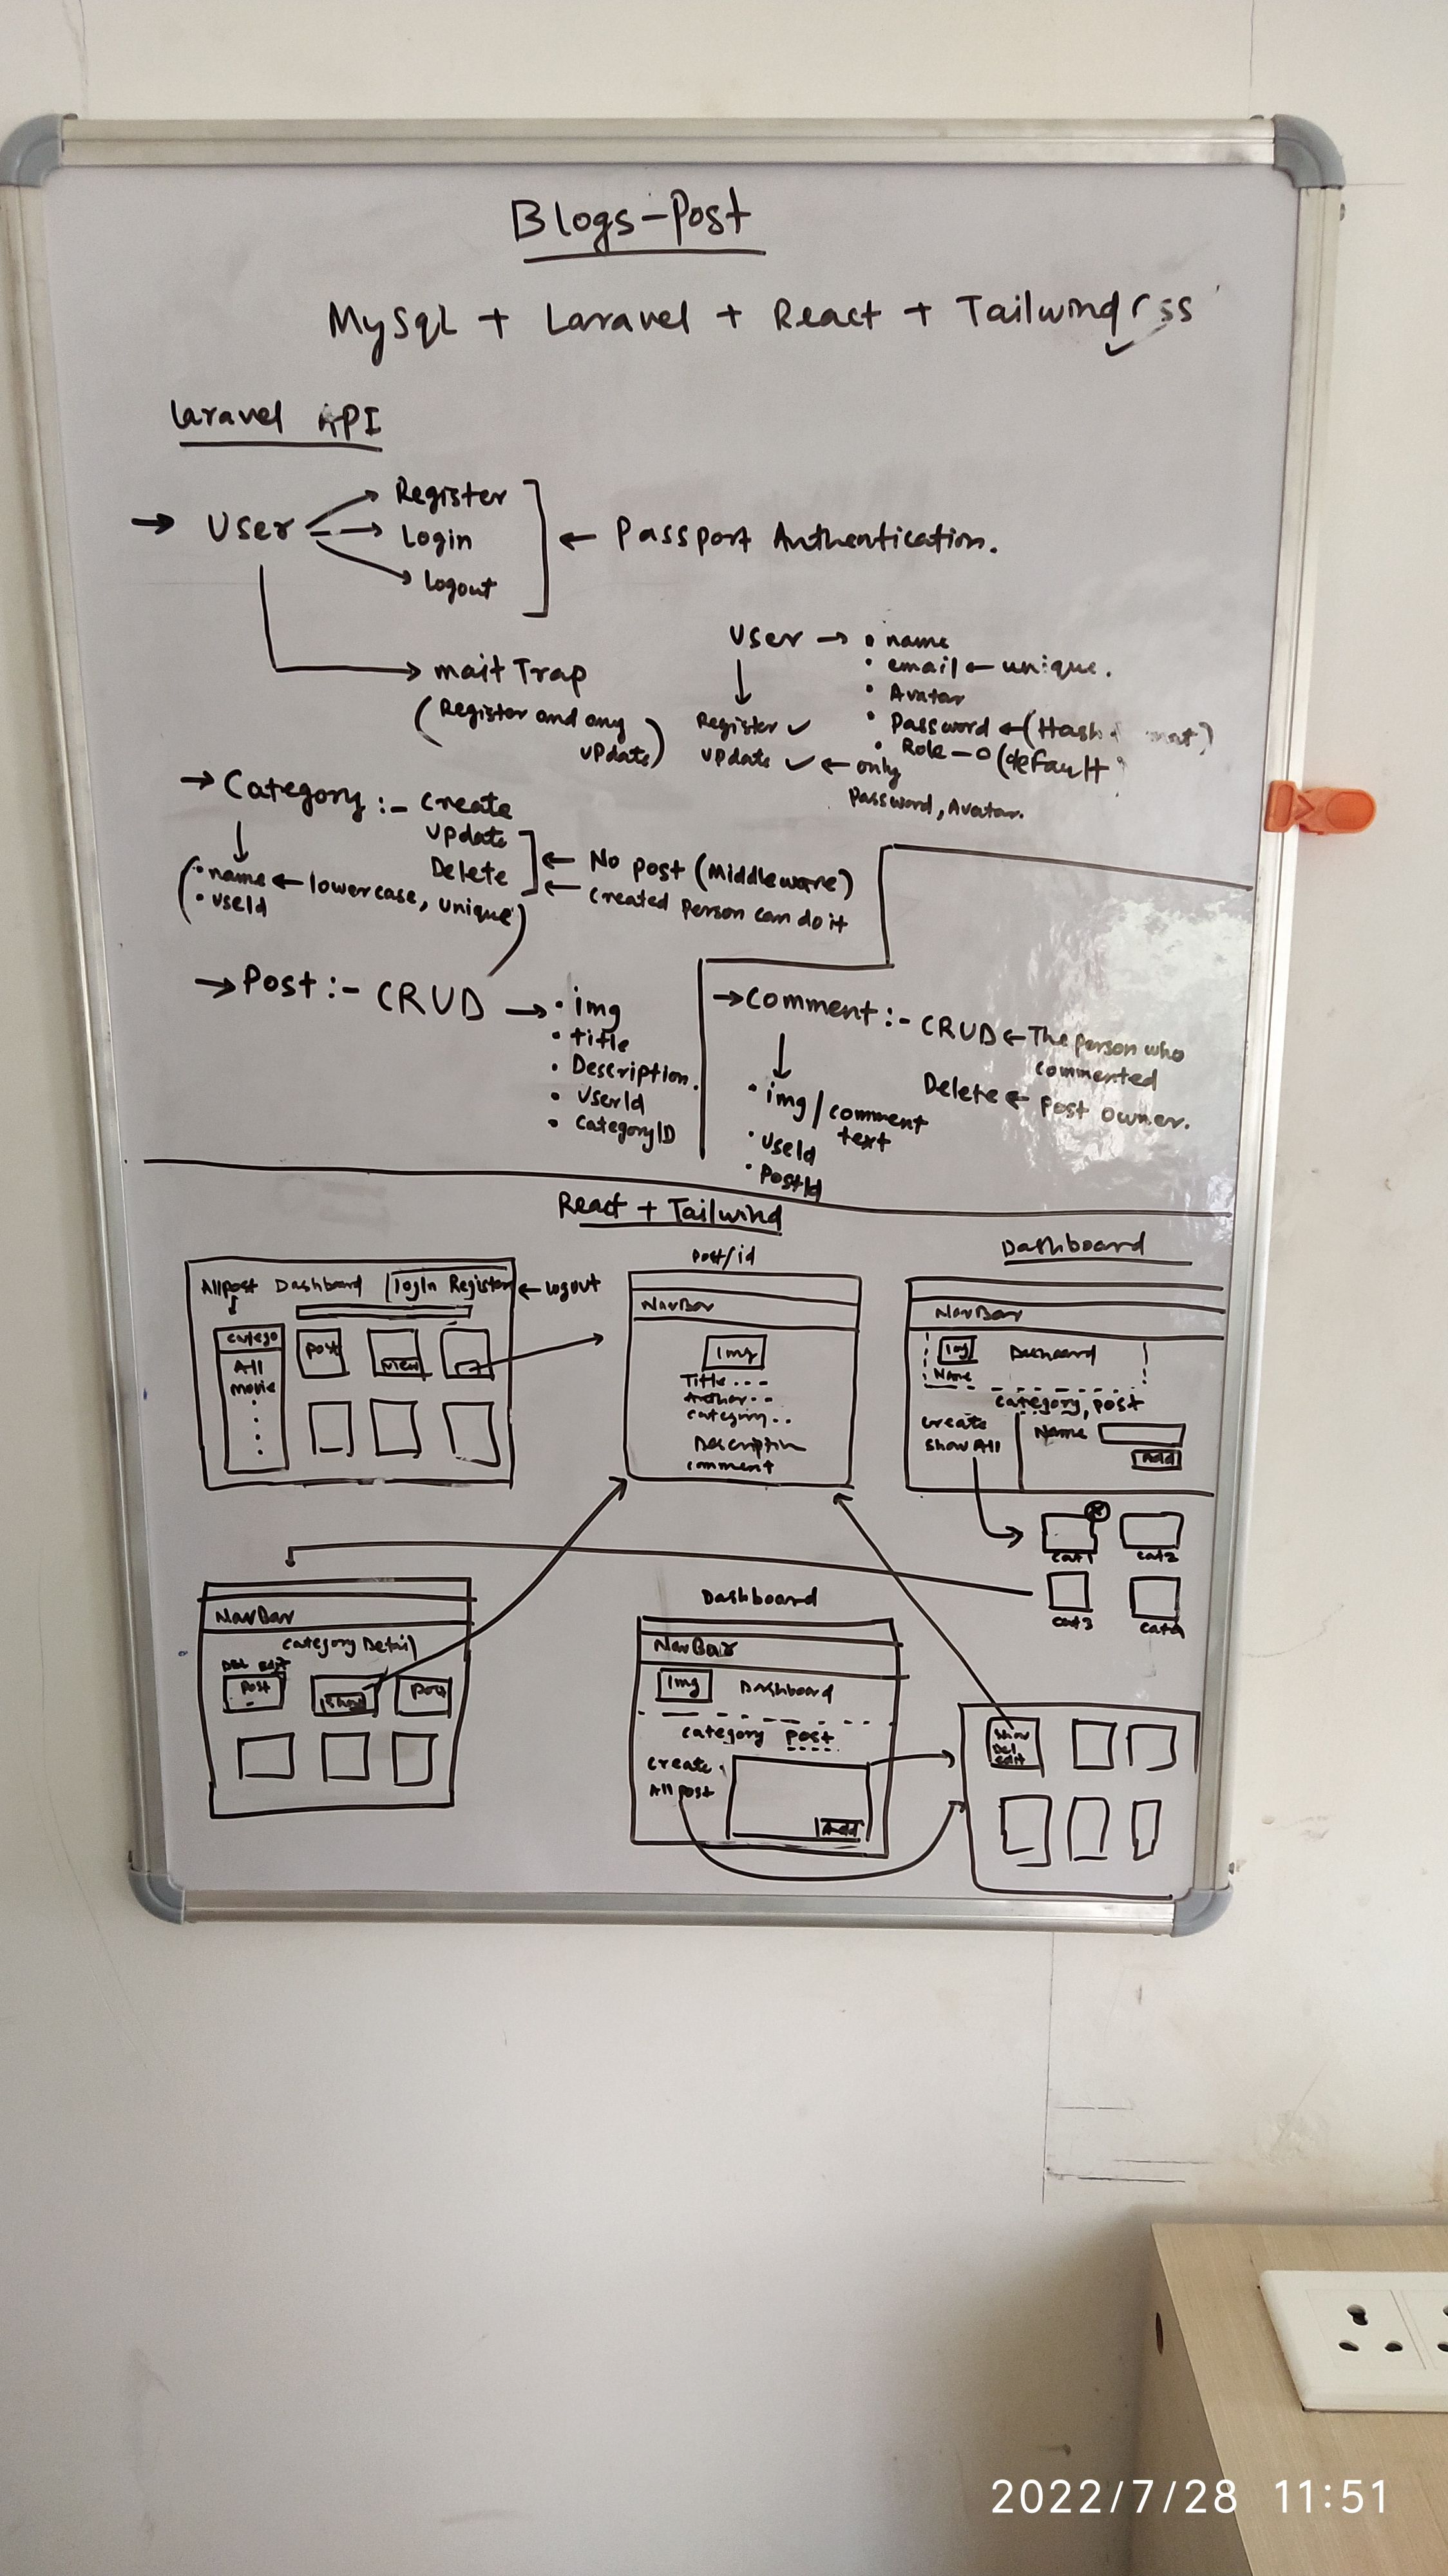 Blogs-Post
MySql + Laravel + React + Tailwind css
laravel API
→ User
Register
Login
Logout
← Passport Authentication.
mait Trap
(Register and any
update)
User → • name
• email ← unique.
• Avatar
• Password ← (Hash
• Role - 0 (default
Register ✓
update ✓ ← only
Password, Avatar.
→ Category :- Create
update
Delete
← No post (Middleware)
← Created person can do it
(• name ← lowercase, unique)
• useId
→ Post :- CRUD → • img
• title
• Description
• UserId
• CategoryID
→ Comment :- CRUD ← The person who
commented
Delete ← Post owner.
• img / comment
text
• useId
• PostId
React + Tailwind
Allpost Dashboard logIn Register ← logout
catego
All
movie
post
view
post/id
NavBar
Img
Title . . .
Author . .
category . .
Description
comment
Dashboard
NavBar
Img
Name
Dashboard
category, post
create
show All
Name
Add
cat1
cat2
cat3
cat4
NavBar
category Detail
Del Edit
Post
show
post
Dashboard
NavBar
Img
Dashboard
category post
create
All post
Add
show
Del
edit
2022/7/28 11:51